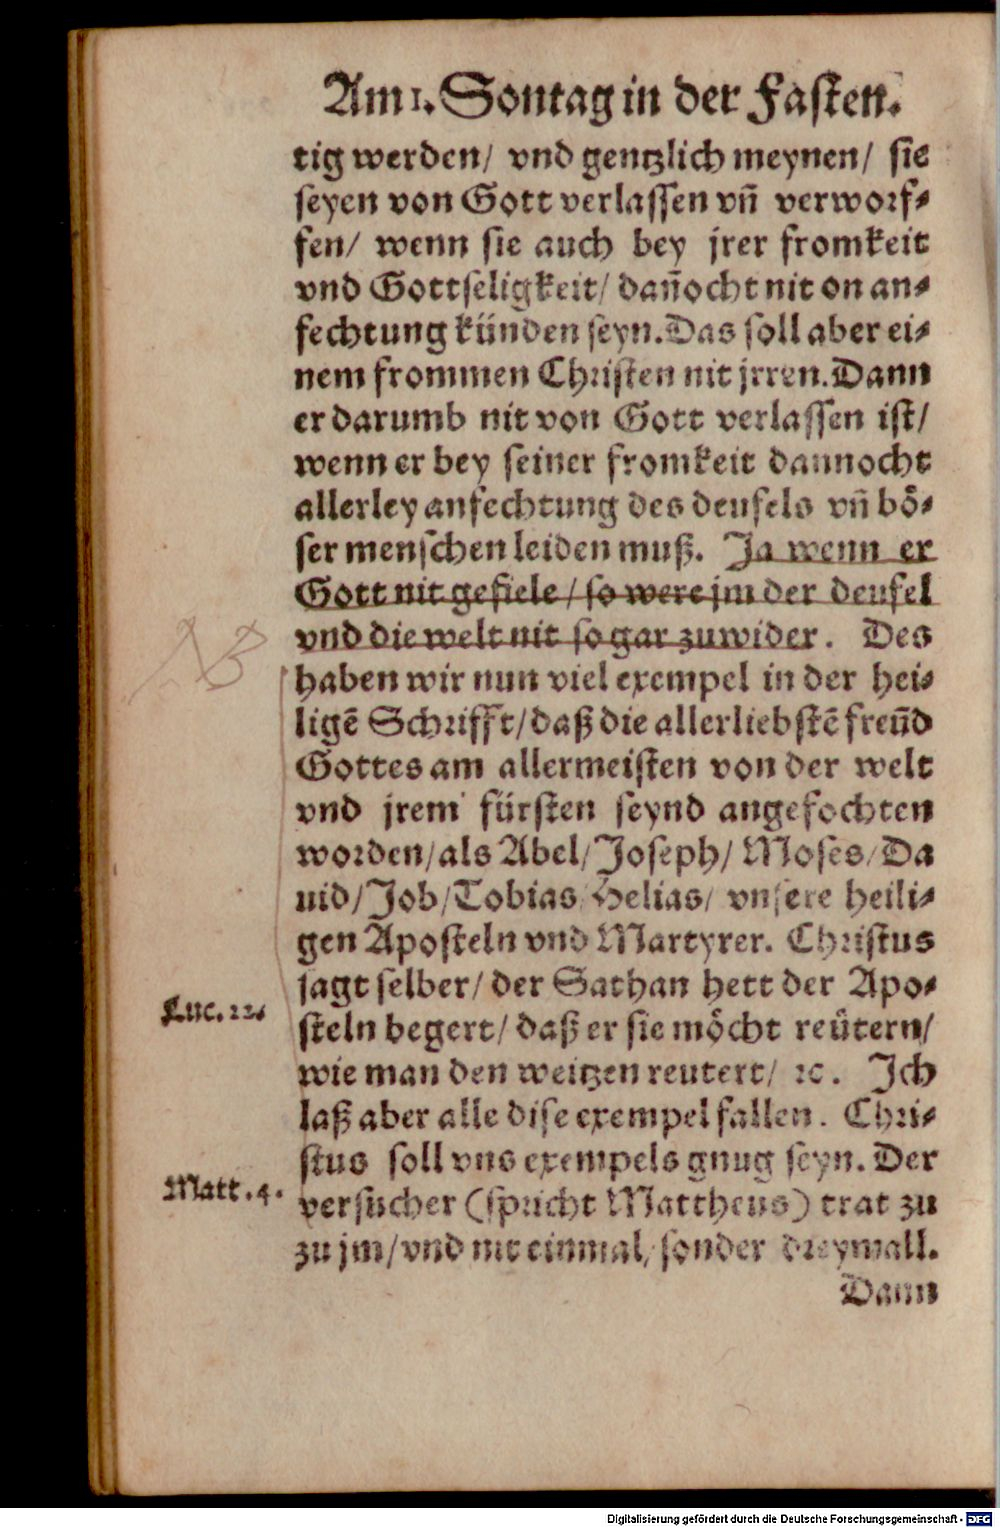 Am 1. Sontag in der Fasten.
tig werden/ vnd gentzlich meynen/ sie
seyen von Gott verlassen vñ verworf⸗
fen/ wenn sie auch bey jrer fromkeit
vnd Gottseligkeit/ dañocht nit on an⸗
fechtung künden seyn. Das soll aber ei⸗
nem frommen Christen nit jrren. Dann
er darumb nit von Gott verlassen ist/
wenn er bey seiner fromkeit dannocht
allerley anfechtung des deufels vñ bö⸗
ser menschen leiden muß. Ja wenn er
Gott nit gefiele/ so were jm der deufel
vnd die welt nit so gar zuwider. Des
NB
haben wir nun viel exempel in der hei⸗
ligẽ Schrifft/ daß die allerliebstẽ freũd
Gottes am allermeisten von der welt
vnd jrem fürsten seynd angefochten
worden/ als Abel/ Joseph/ Moses/ Da
uid/ Job/ Tobias/ Helias/ vnsere heili⸗
gen Aposteln vnd Martyrer. Christus
sagt selber/ der Sathan hett der Apo⸗
Luc. 22.
steln begert/ daß er sie möcht reütern/
wie man den weitzen reutert/ ꝛc. Ich
laß aber alle dise exempel fallen. Chri⸗
stus soll vns exempels gnug seyn. Der
Matt. 4.
versücher (spricht Mattheus) trat zu
zu jm/ vnd nit einmal/ sonder dreymall.
Dann
Digitalisierung gefördert durch die Deutsche Forschungsgemeinschaft - DFG